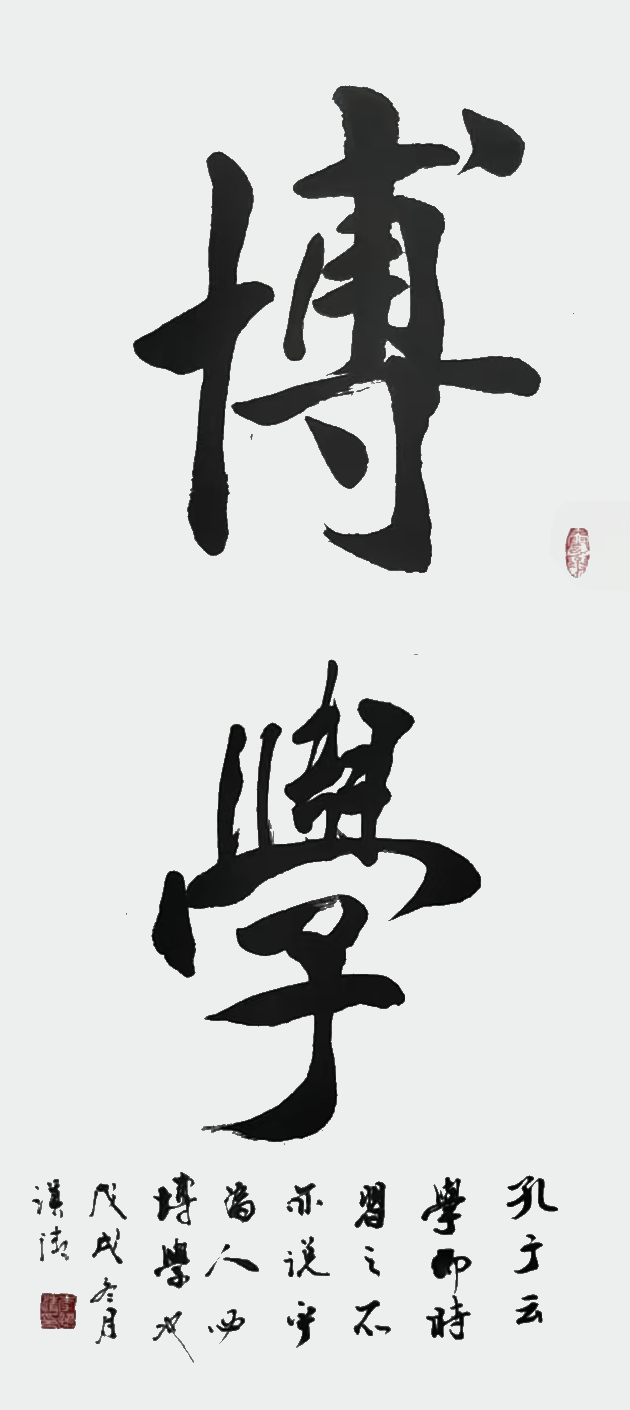 博學
孔子云
學而時
習之不
亦说乎
人
博學也
戊戌冬月
漢